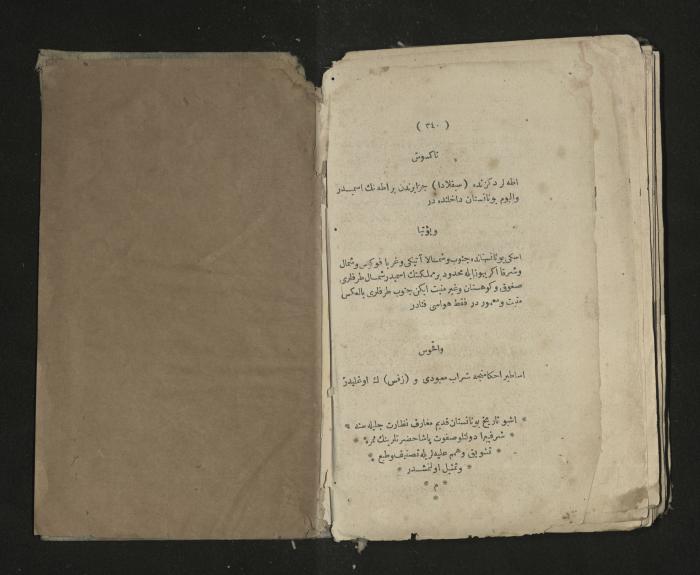 ( ٣٤٠ )
ناكسوس
اطه لر دكزنده (سيقلادا) جزايرندن براطه نك اسميدر
واليوم يونانستان داخلنده در
ويؤتيا
اسكى يونانستانده جنوب وشمالا آتيكى وغربا فوكيس وشمال
وشرقا اكريبوز ايله محدود بر مملكتك اسميدر شمال طرفلرى
صغوق وكوهستان وغير منبت ايكن جنوب طرفلرى بالعكس
منبت ومعمور در فقط هواسى فنادر
واخوس
اساطير احكامنجه شراب معبودى و (زفس) ك اوغليدر
* اشبو تاريخ يونانستان قديم معارف نظارت جليله سنه *
* شرفپيرا دولتلو صفوت پاشا حضرتلرينك *
* تشويق وهمم عليه لريله تصنيف وطبع *
* وتمثيل اولنمشدر *
* م *
*